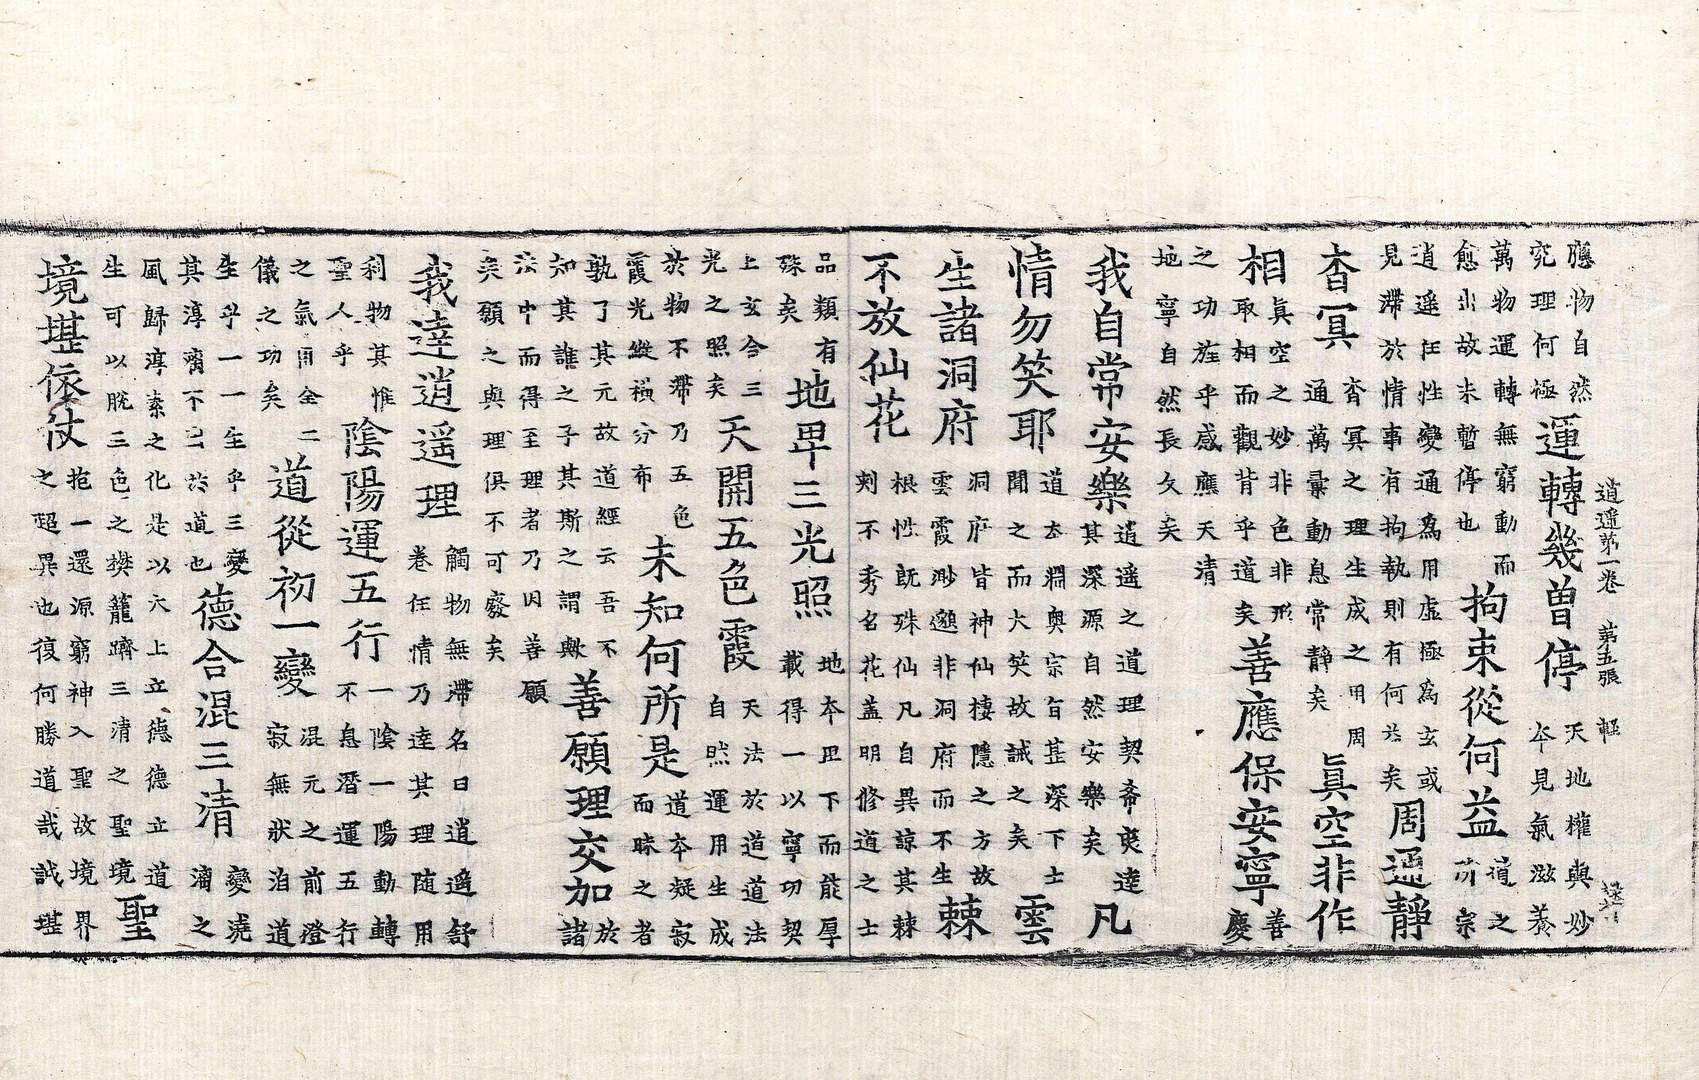 逍遥第一卷 第五張
物自然
究理何極
運轉幾曾停
天地權與妙
本見氣滋養
萬物運轉無窮動而
愈出故未暫停也
拘束從何益
道之
所宗
逍遥任性變通為用虛極為玄或
見滯於情事有拘執則有何益矣
周通靜
杳冥
杳冥之理生成之用周
通萬彙動息常靜矣
真空非作
相
真空之妙非色非形
取相而觀背乎道矣
善應保安寧
善
慶
之功旌乎感應天清
地寧自然長久矣
我自常安樂
逍遥之道理契奧達
其深源自然安樂矣
凡
情勿笑耶
道本淵奧宗旨甚深下士
聞之而大笑故誡之矣
雲
生諸洞府
洞府皆神仙棲隱之方故
雲霞渺邈非洞府而不生
棘
不放仙花
根性既殊仙凡自異諒其棘
刺不秀名花蓋明修道之士
品類有
殊矣
地卑三光照
地本卑下而能厚
載得一以寧功契
上玄令三
光之照矣
天開五色霞
天法於道道法
自然運用生成
於物不滯乃五色
霞光縱橫分布
未知何所是
道本凝寂
而昧之者
孰了其元故道經云吾不
知其誰之子其斯之謂歟
善願理交加
於
諸
法中而得至理者乃因善願
矣願之與理俱不可廢矣
我達逍遥理
觸物無滯名曰逍遥舒
卷任情乃達其理随用
利物其惟
聖人乎
陰陽運五行
一陰一陽動轉
不息潛運五行
之氣用全二
儀之功矣
道從初一變
混元之前澄
寂無狀泊道
生乎一一生乎三變
其淳漓不出於道也
德合混三清
變澆
漓之
風歸淳素之化是以六上立德德立道
生可以脫三色之樊籠躋三清之聖境
聖
境堪依仗
抱一還源窮神入聖故境界
之超異也復何勝道哉誠堪